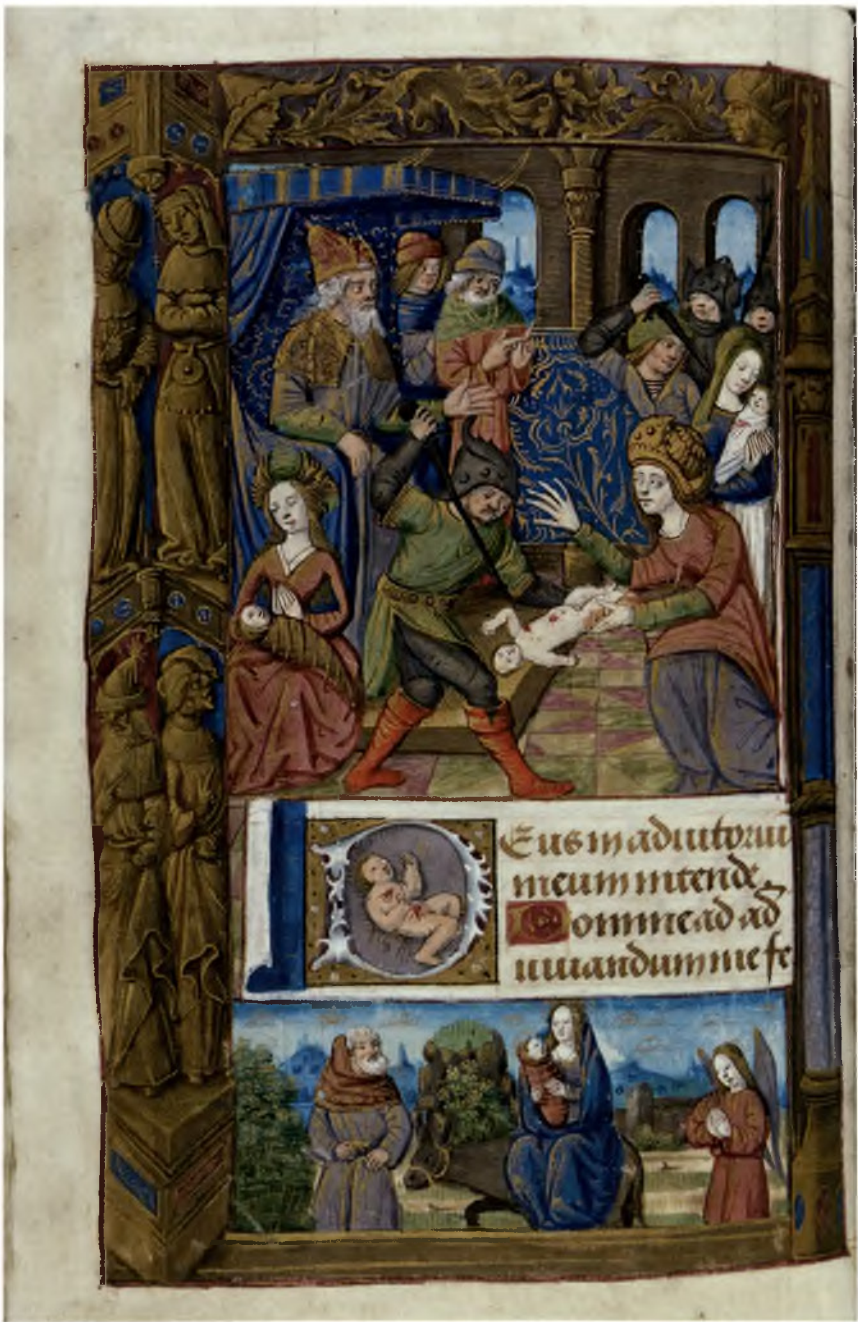 Deus in adiutoriu
meum intende
Domine ad ad
iuuandum me fe